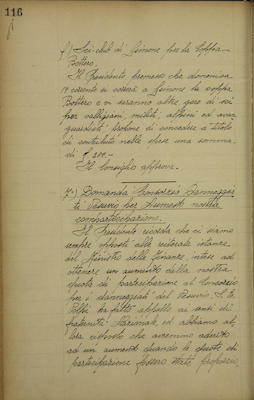 116
f) Sci-club di Limone per la Coppa
Bottero.
Il Presidente premesso che domenica
19 corrente vi sarà a Limone la coppa
Bottero e vi saranno altre gare di sci
per valligiani, militi, alpini ed avan
guardisti propone di concedere a titolo
di contributo nelle spese una somma
di £ 200.-
Il Consiglio approva.
7°) Domanda Consorzio Danneggia
ti Vesuvio per aumento nostra
compartecipazione.
Il Presidente ricorda che ci siamo
sempre opposti alle reiterate istanze
del Ministro delle Finanze, intese ad
ottenere un aumento della nostra
quota di partecipazione al Consorzio
per i danneggiati del Vesuvio. S. E.
ha fatto appello ai sensi di
fraternità Nazionale ed abbiamo al
lora risposto che avremmo aderito
ad un aumento quando le quote di
partecipazione fossero state